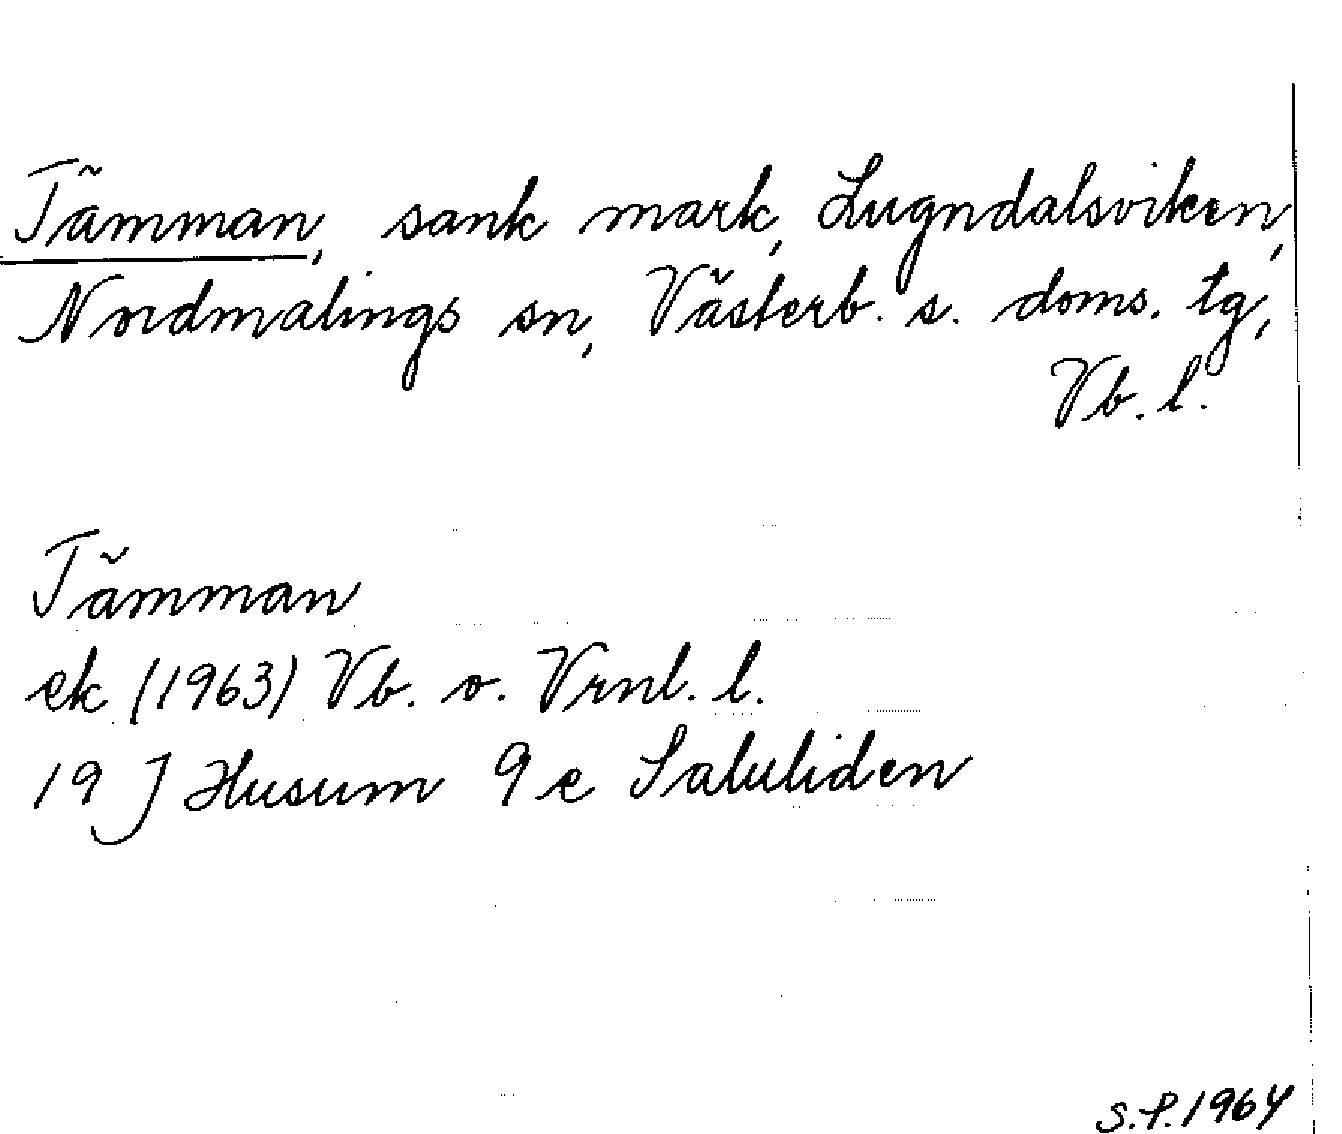 Tämman, sank mark, Lugndalsviken,
Nordmalings sn, Västerb. s. doms. tg,
Vb. l.
Tämman
ek (1963) Vb. o. Vrnl. l.
19 J Husum 9 e Saluliden
S.P. 1964